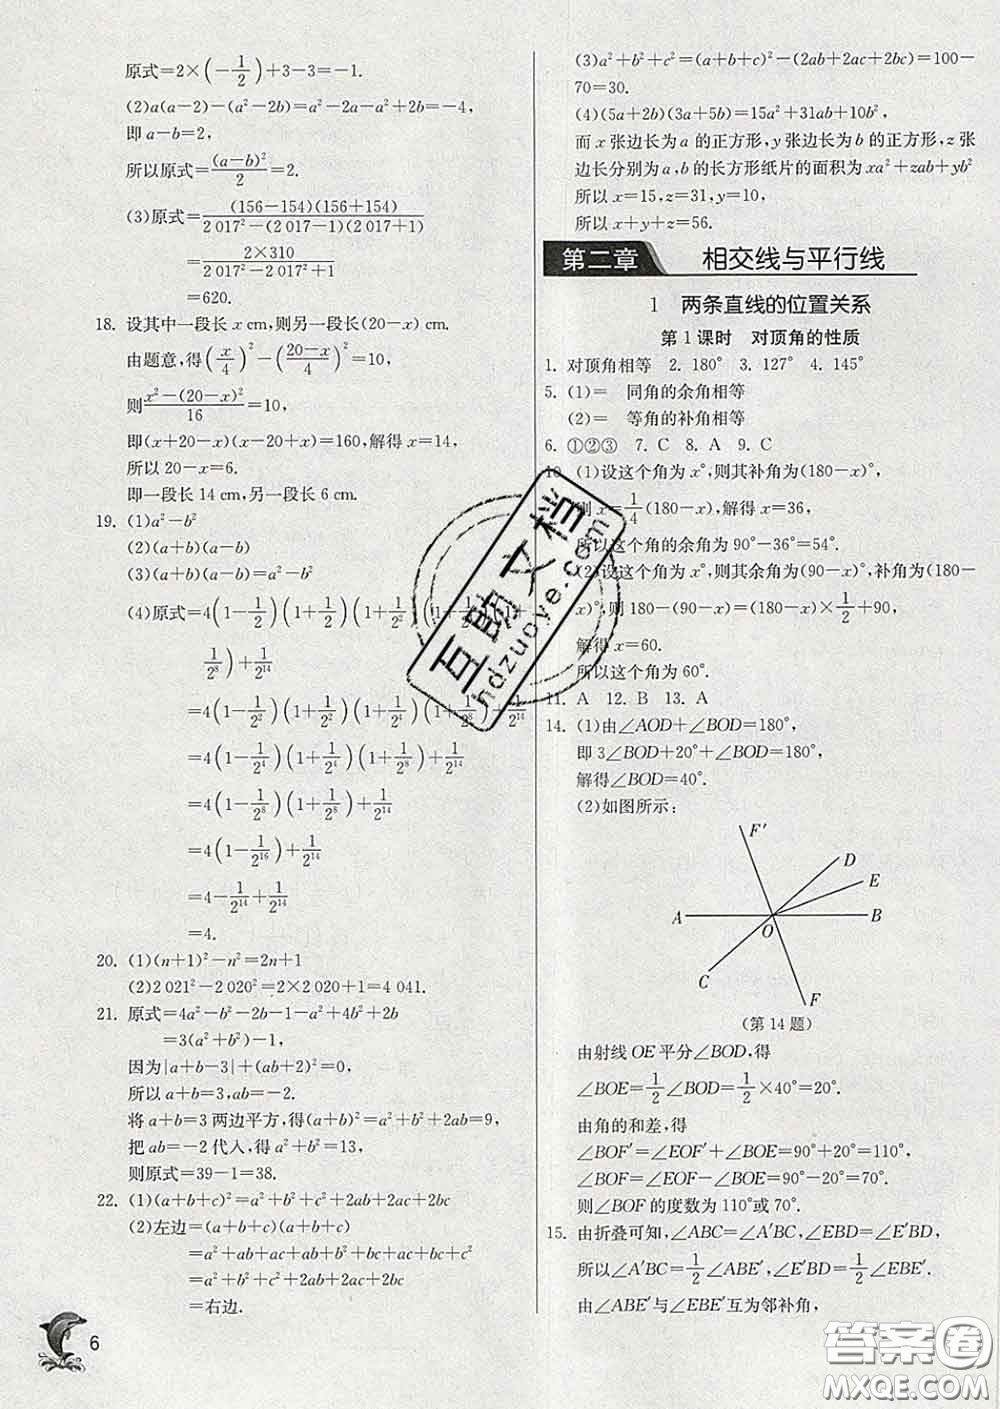 原式=2×(-1/2)+3-3=-1.
(2)a(a-2)-(a²-2b)=a²-2a-a²+2b=-4,
即 a-b=2,
所以原式=(a-b)²/2=2.
(3)原式=(156-154)(156+154)/(2 017²-(2 017-1)(2 017+1))
=2×310/(2 017²-2 017²+1)
=620.
18. 设其中一段长 x cm,则另一段长(20-x) cm.
由题意,得(x/4)²-((20-x)/4)²=10,
则(x²-(20-x)²)/16=10,
即(x+20-x)(x-20+x)=160,解得 x=14,
所以 20-x=6.
即一段长 14 cm,另一段长 6 cm.
19. (1)a²-b²
(2)(a+b)(a-b)
(3)(a+b)(a-b)=a²-b²
(4)原式=4(1-1/2)(1+1/2)(1+1/2²)(1+1/2⁴)(1+
1/2⁸)+1/2¹⁴
=4(1-1/2²)(1+1/2²)(1+1/2⁴)(1+1/2⁸)+1/2¹⁴
=4(1-1/2⁴)(1+1/2⁴)(1+1/2⁸)+1/2¹⁴
=4(1-1/2⁸)(1+1/2⁸)+1/2¹⁴
=4(1-1/2¹⁶)+1/2¹⁴
=4-1/2¹⁴+1/2¹⁴
=4.
20. (1)(n+1)²-n²=2n+1
(2)2 021²-2 020²=2×2 020+1=4 041.
21. 原式=4a²-b²-2b-1-a²+4b²+2b
=3(a²+b²)-1,
因为|a+b-3|+(ab+2)²=0,
所以 a+b=3,ab=-2.
将 a+b=3 两边平方,得(a+b)²=a²+b²+2ab=9,
把 ab=-2 代入,得 a²+b²=13,
则原式=39-1=38.
22. (1)(a+b+c)²=a²+b²+c²+2ab+2ac+2bc
(2)左边=(a+b+c)(a+b+c)
=a²+ab+ac+ab+b²+bc+ac+bc+c²
=a²+b²+c²+2ab+2ac+2bc
=右边.
6
(3)a²+b²+c²=(a+b+c)²-(2ab+2ac+2bc)=100-
70=30.
(4)(5a+2b)(3a+5b)=15a²+31ab+10b²,
而 x 张边长为 a 的正方形,y 张边长为 b 的正方形,z 张
边长分别为 a,b 的长方形纸片的面积为 xa²+zab+yb²
所以 x=15,z=31,y=10,
所以 x+y+z=56.
第二章 相交线与平行线
1 两条直线的位置关系
第 1 课时 对顶角的性质
1. 对顶角相等 2. 180° 3. 127° 4. 145°
5. (1)= 同角的余角相等
(2)= 等角的补角相等
6. ①②③ 7. C 8. A 9. C
10. (1)设这个角为 x°,则其补角为(180-x)°,
则 x=1/4(180-x),解得 x=36,
所以这个角的余角为 90°-36°=54°.
(2)设这个角为 x°,则其余角为(90-x)°,补角为(180-
x)°,则 180-(90-x)=(180-x)×1/2+90,
解得 x=60.
所以这个角为 60°.
11. A 12. B 13. A
14. (1)由∠AOD+∠BOD=180°,
即 3∠BOD+20°+∠BOD=180°,
解得∠BOD=40°.
(2)如图所示:
F′
D
E
A
B
O
C
F
(第 14 题)
由射线 OE 平分∠BOD,得
∠BOE=1/2∠BOD=1/2×40°=20°.
由角的和差,得
∠BOF′=∠EOF′+∠BOE=90°+20°=110°,
∠BOF=∠EOF-∠BOE=90°-20°=70°.
则∠BOF 的度数为 110°或 70°.
15. 由折叠可知,∠ABC=∠A′BC,∠EBD=∠E′BD,
所以∠A′BC=1/2∠ABE′,∠E′BD=1/2∠EBE′.
由∠ABE′与∠EBE′互为邻补角,
互助文档
hdzuoye.com
答案圈
MXQE.COM